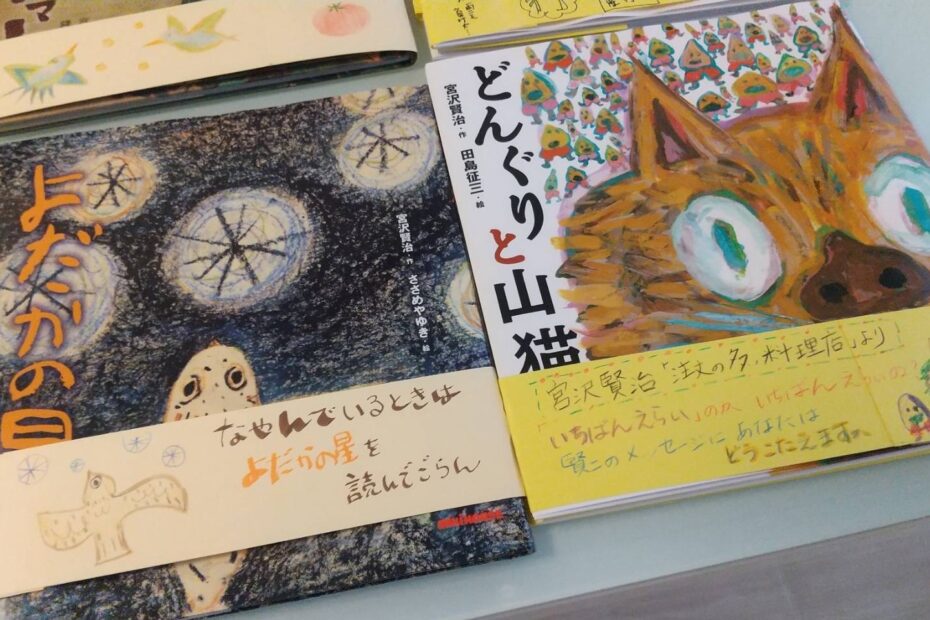 マ
よだかの星
宮沢賢治・作 ささめやゆき・絵
なやんでいるときは
よだかの星を
読んでごらん
どんぐりと山猫
宮沢賢治・作 田島征三・絵
宮沢賢治「注文の多い料理店」より!
「いちばんえらい」のが、いちばんえらいの!
賢このメッセージにあなたは
どうこたえますか